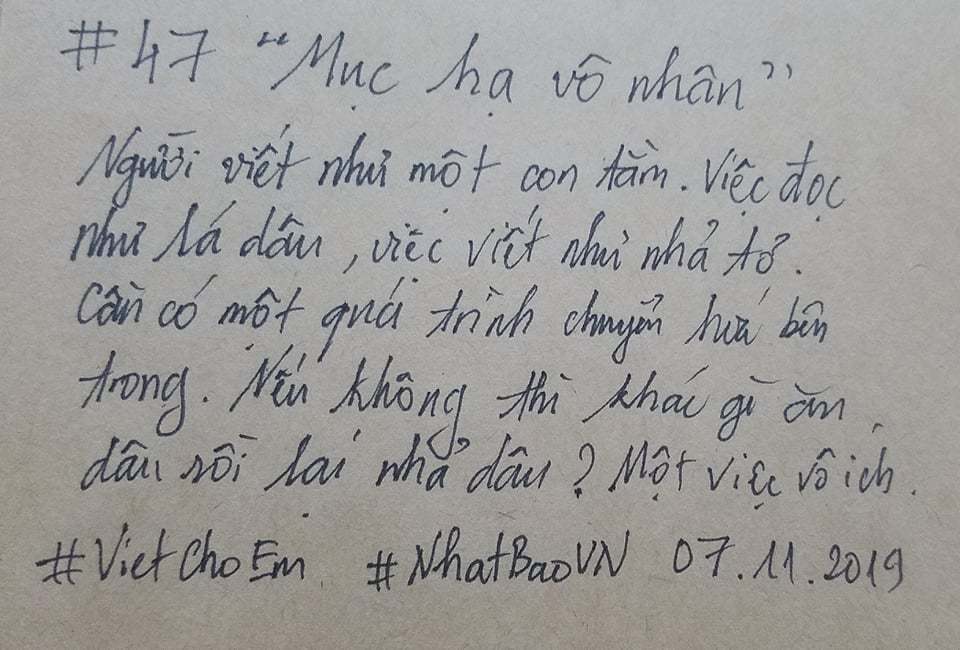 #47 "Mục hạ vô nhân"
Người viết như một con tằm. Việc đọc
như lá dâu, việc viết như nhả tơ.
Cần có một quá trình chuyển hoá bên
trong. Nếu không thì khác gì ăn
dâu rồi lại nhả dâu? Một việc vô ích.
#VietChoEm #NhatBaoVN 07.11.2019